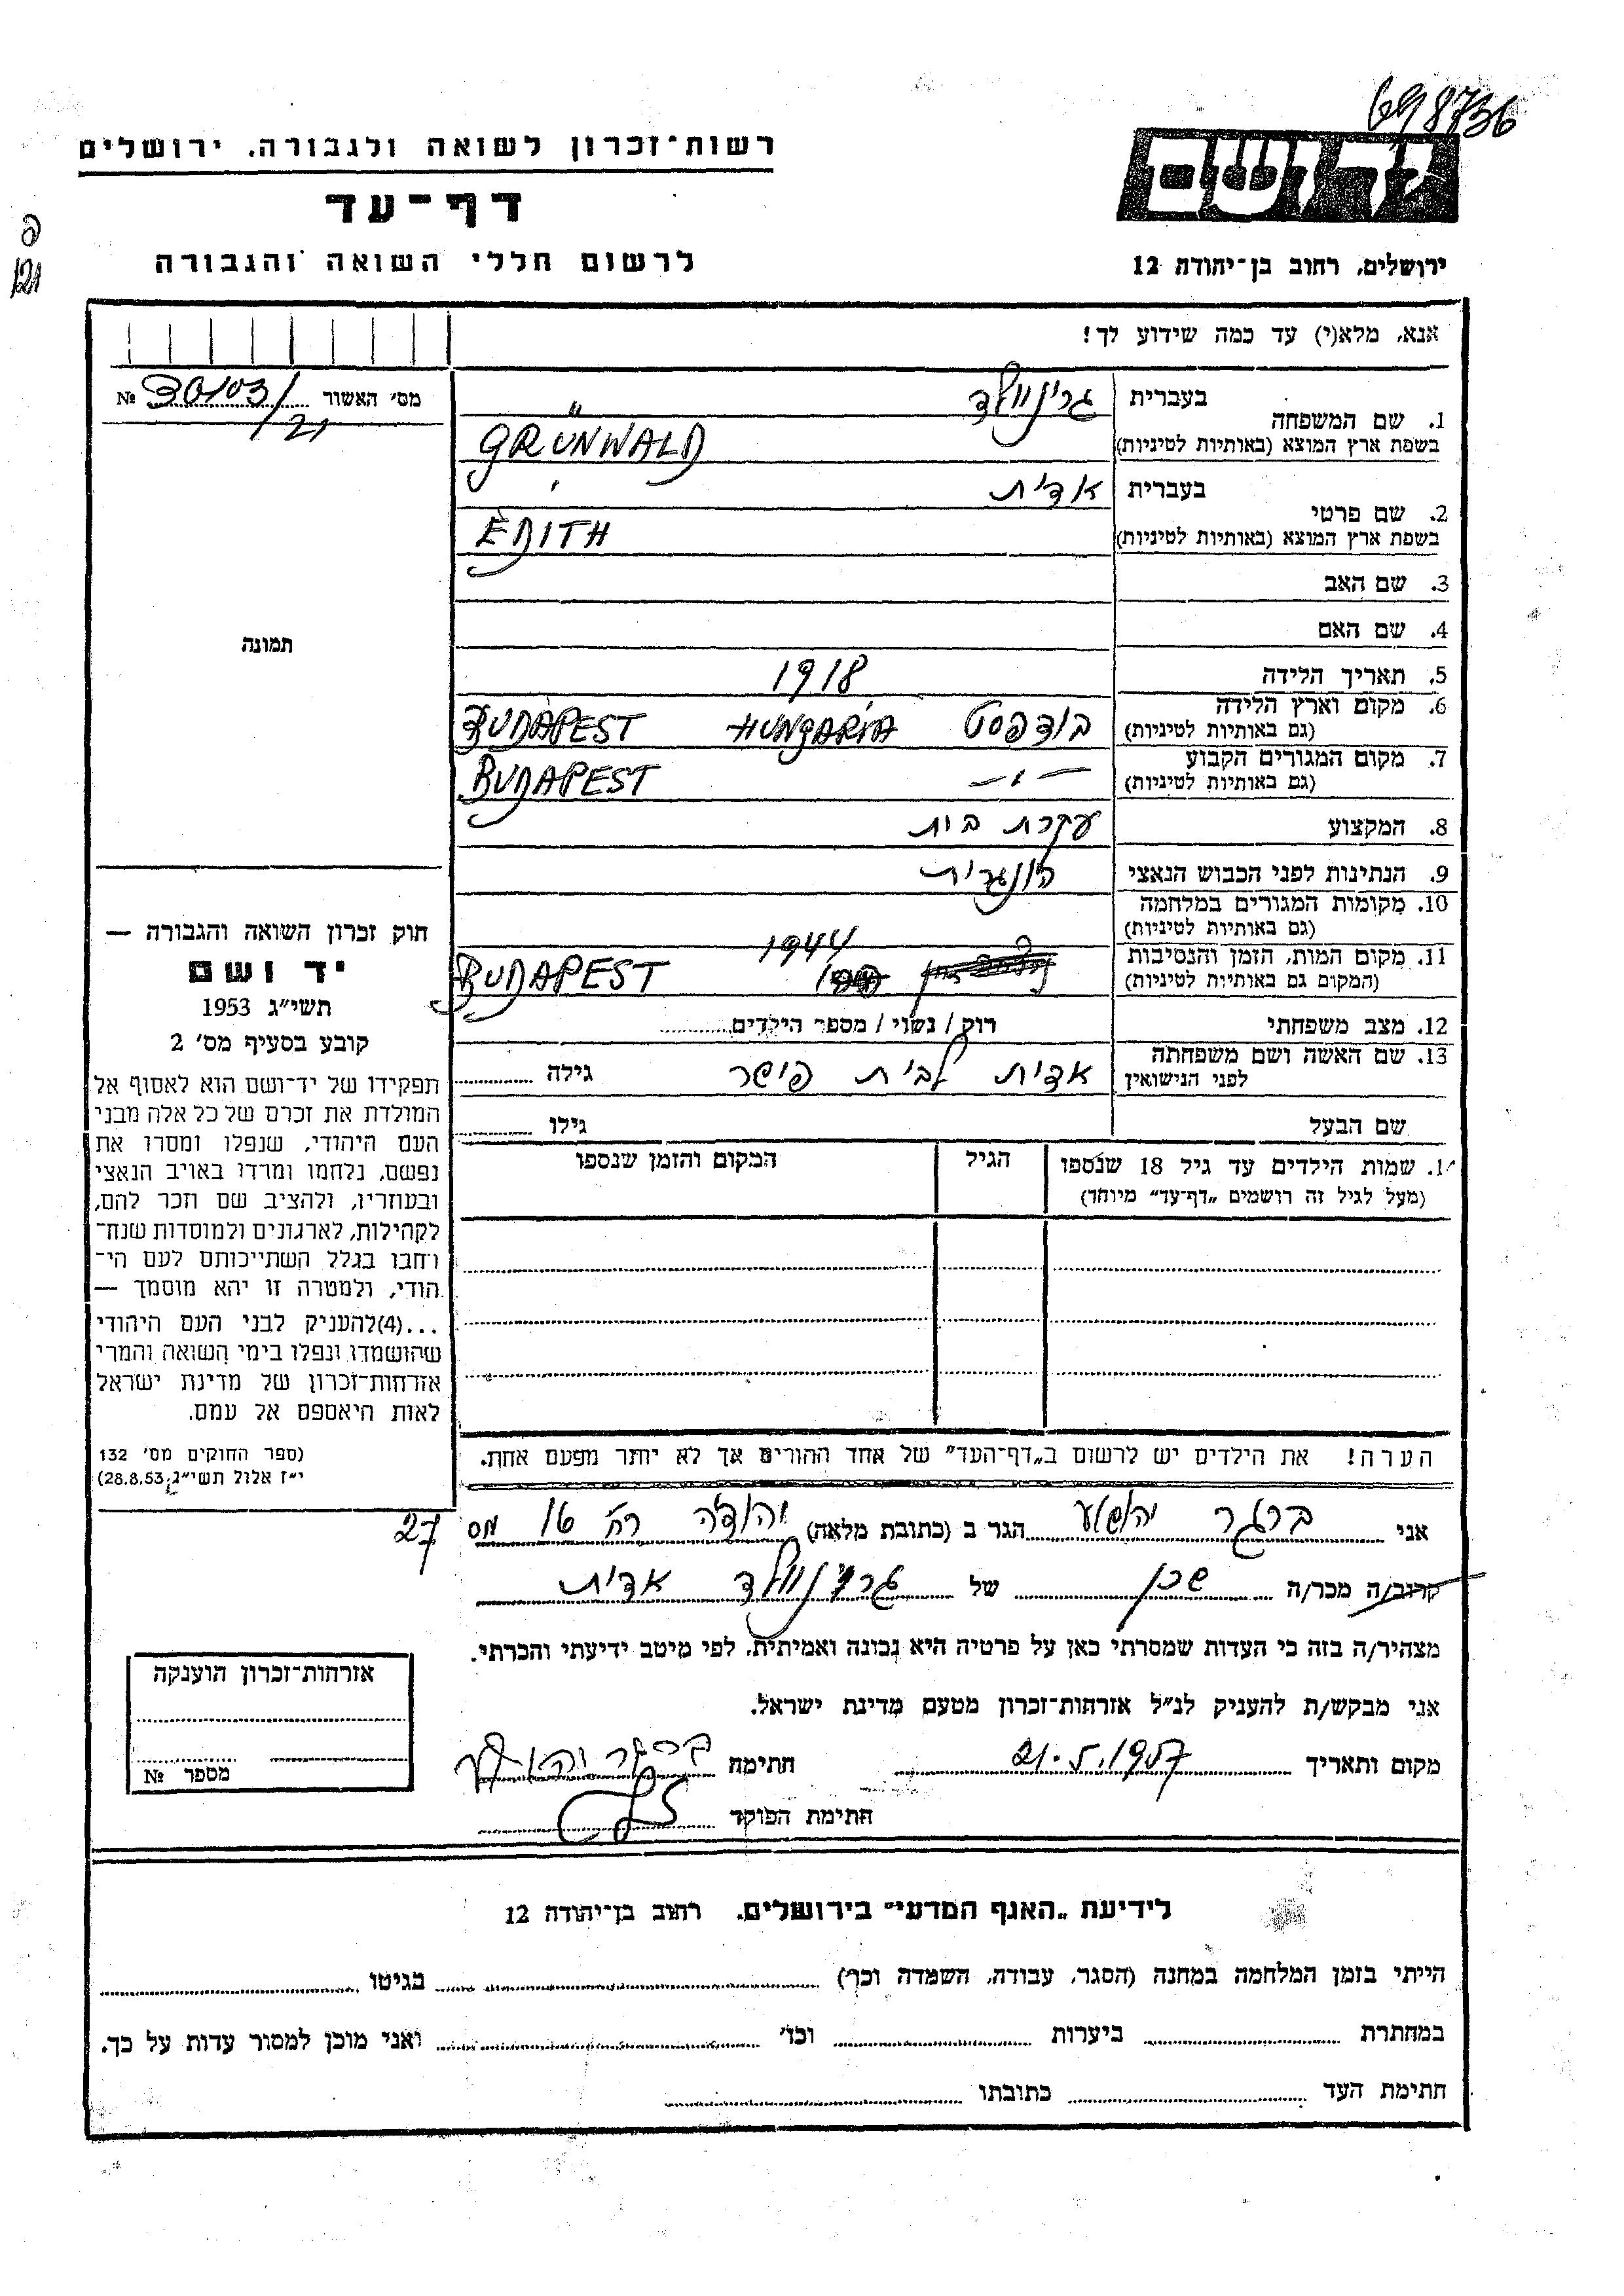 698736
רשות־זכרון לשואה ולגבורה, ירושלים
דף־עד
לרשום חללי השואה והגבורה
יד ושם
ירושלים, רחוב בן־יהודה 12
121
אנא, מלא(י) עד כמה שידוע לך!
מס׳ האשור 30103/21 №
1. שם המשפחה בעברית גרינוולד
בשפת ארץ המוצא (באותיות לטיניות) GRÜNWALD
2. שם פרטי בעברית אדית
בשפת ארץ המוצא (באותיות לטיניות) EDITH
3. שם האב
4. שם האם
תמונה
5. תאריך הלידה 1918
6. מקום וארץ הלידה (גם באותיות לטיניות) בודפסט HUNGARIA BUDAPEST
7. מקום המגורים הקבוע (גם באותיות לטיניות) — " — BUDAPEST
8. המקצוע עקרת בית
9. הנתינות לפני הכבוש הנאצי הונגרית
10. מקומות המגורים במלחמה (גם באותיות לטיניות)
11. מקום המות, הזמן והנסיבות (המקום גם באותיות לטיניות) 1944 BUDAPEST
12. מצב משפחתי רוק / נשוי / מספר הילדים
13. שם האשה ושם משפחתה לפני הנישואין אדית לבית פישר גילה
שם הבעל גילו
חוק זכרון השואה והגבורה —
יד ושם
תשי״ג 1953
קובע בסעיף מס׳ 2
תפקידו של יד־ושם הוא לאסוף אל
המולדת את זכרם של כל אלה מבני
העם היהודי, שנפלו ומסרו את
נפשם, נלחמו ומרדו באויב הנאצי
ובעוזריו, ולהציב שם וזכר להם,
לקהילות, לארגונים ולמוסדות שנח־
רחבו בגלל השתייכותם לעם הי־
הודי, ולמטרה זו יהא מוסמך —
...(4)להעניק לבני העם היהודי
שהושמדו ונפלו בימי השואה והמרי
אזרחות־זכרון של מדינת ישראל
לאות היאספם אל עמם.
(ספר החוקים מס׳ 132
י״ז אלול תשי״ג, 28.8.53)
1. שמות הילדים עד גיל 18 שנספו הגיל המקום והזמן שנספו
(מעל לגיל זה רושמים „דף־עד” מיוחד)
הערה! את הילדים יש לרשום ב„דף־העד” של אחד ההורים אך לא יותר מפעם אחת.
אני ברגר יהושע הגר ב (כתובת מלאה) יהודה רח׳ טו מס 27
קרוב/ה מכר/ה שכן של גרינוולד אדית
מצהיר/ה בזה כי העדות שמסרתי כאן על פרטיה היא נכונה ואמיתית, לפי מיטב ידיעתי והכרתי.
אני מבקש/ת להעניק לנ״ל אזרחות־זכרון מטעם מדינת ישראל.
מקום ותאריך 21.5.1957 חתימה ברגר יהושע
חתימת הפוקד
אזרחות־זכרון הוענקה
מספר №
לידיעת „האגף המדעי” בירושלים, רחוב בן־יהודה 12
הייתי בזמן המלחמה במחנה (הסגר, עבודה, השמדה וכך) בגיטו
במחתרת ביערות וכו׳ ואני מוכן למסור עדות על כך.
חתימת העד כתובתו